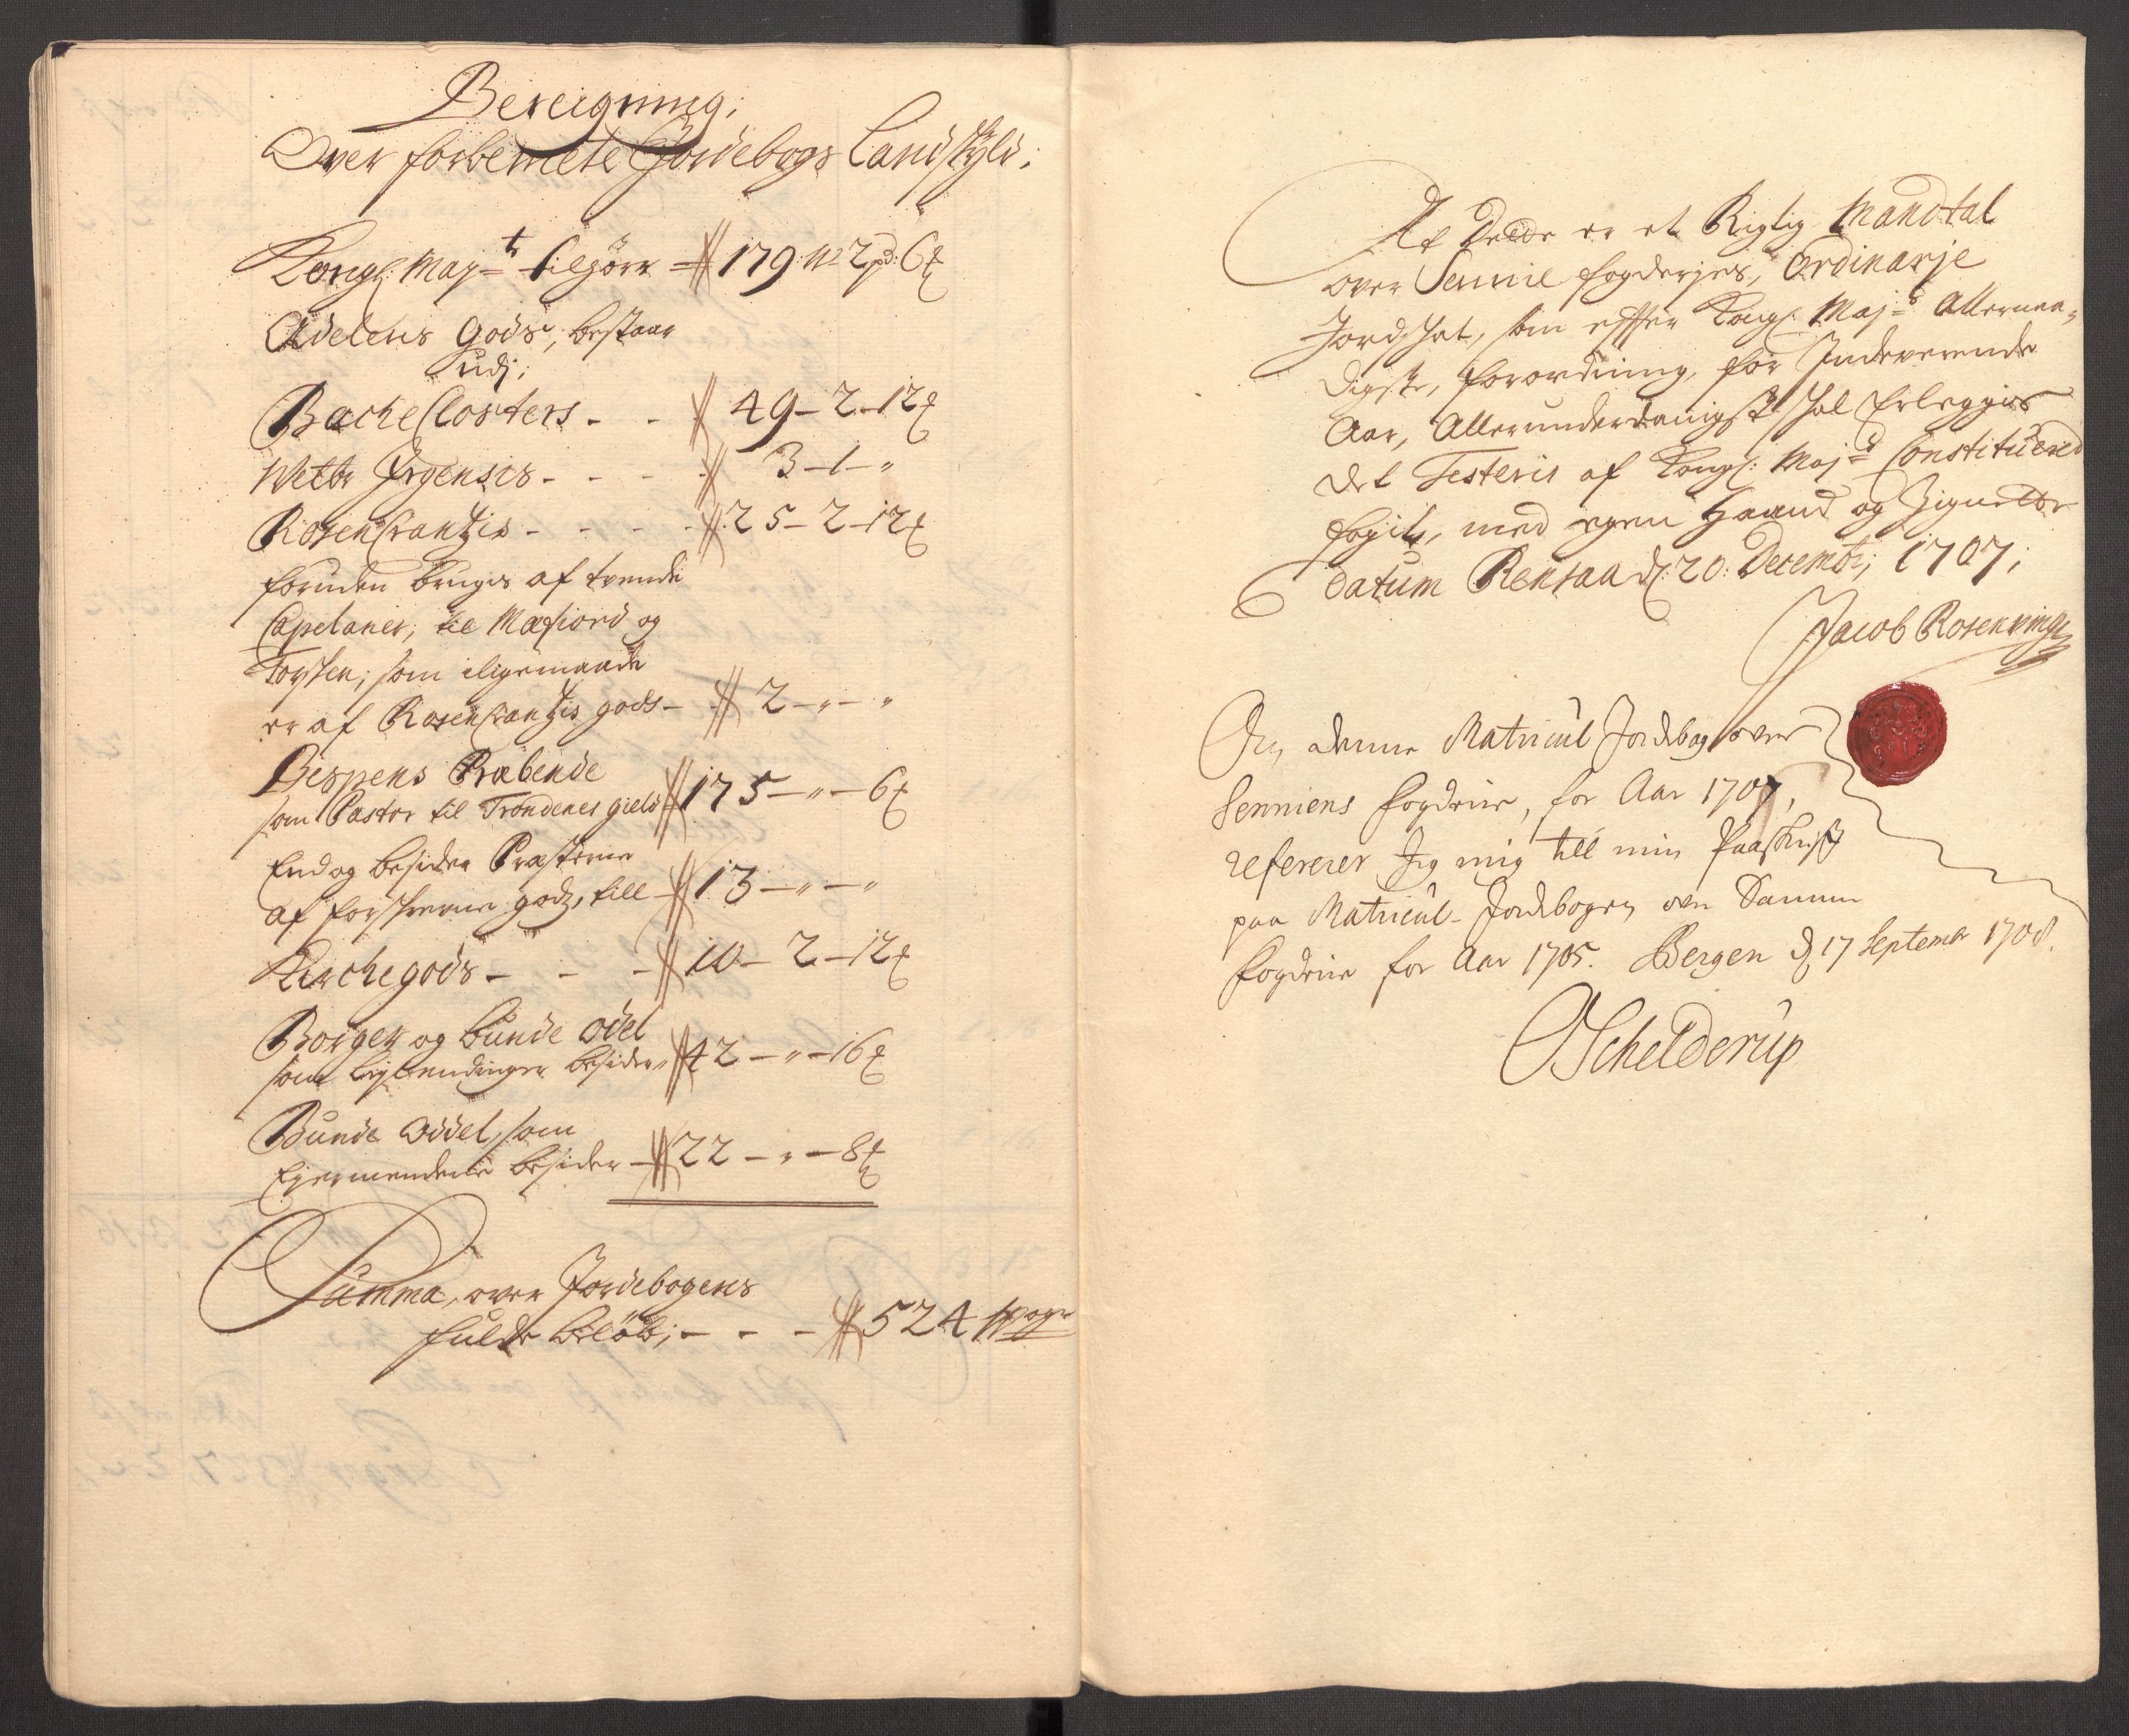 Bereigning;
Over forbemete Jordebogs Landskyld;
Kongl: Mayt tilhører 179 W 2 pd: 6
Adelens Gods, bestaar
udj;
Bache Closters - - 49 - 2 - 12
Wette Jrgensis - - - 3 - 1 - "
RosenCrantzis - - - 25 - 2 - 12
foruden bruges af tvende
Capelaner, til Mæfiord og
Torsken; som iligemaade
er af RosenCrantzis gods - 2 - " - "
Bespens Præbende
som Pastor til Trondenes gield 175 - " - 6
End og besider Præsterne
af forskrevne godz, till 13 - " - "
Kirchegods - - - 10 - 2 - 12
Borger og bunde odel
som besider 42 - " - 16
Bunde oddel, som
Ejermendene besider - 22 - " - 8
Summa, over Jordebogens
fulde beløb; - - - 524 Woger
At dette er et Rigtig Mandtal
over Sennie fogderjes, Ordinarje
Jordskat, som efter Kongl: Majts Allernaa-
digste, forordning, for Indeverende
Aar, Allerunderdanigst skal Erleggis
det Testeris af Kongl: Majts Constituered
fogit, med egen Haand og Zignette
Datum Rensaa d: 20: Decembr; 1707;
Jacob Rosenvinge
denne Matricul Jordebog over
Senniens fogderie, for Aar 1707,
refererer Jeg mig till min Paaskrift
paa Matricul-Jordebogen over Samme
fogderie for Aar 1705. Bergen d 17 Septembr 1708.
Schelderup